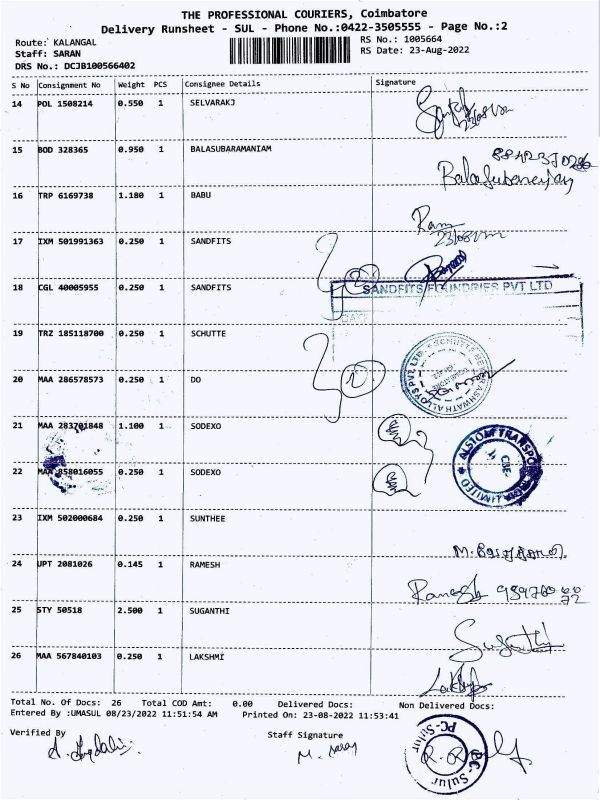 THE PROFESSIONAL COURIERS, Coimbatore
Delivery Runsheet - SUL - Phone No.:0422-3505555 - Page No.:2
Route: KALANGAL
RS No.: 1005664
Staff: SARAN
RS Date: 23-Aug-2022
DRS No.: DCJB100566402
S No Consignment No Weight PCS Consignee Details Signature
14 POL 1508214 0.550 1 SELVARAKJ
15 BOD 328365 0.950 1 BALASUBARAMANIAM
16 TRP 6169738 1.180 1 BABU
Ram
17 IXM 501991363 0.250 1 SANDFITS
18 CGL 40005955 0.250 1 SANDFITS
SANDFITS FOUNDRIES PVT LTD
DATE
19 TRZ 185118700 0.250 1 SCHUTTE
20 MAA 286578573 0.250 1 DO
21 MAA 283701848 1.100 1 SODEXO
ALSTOM TRANSPORT INDIA LIMITED
CBE
22 MAA 858016055 0.250 1 SODEXO
23 IXM 502000684 0.250 1 SUNTHEE
24 UPT 2081026 0.145 1 RAMESH
Ramesh
25 STY 50518 2.500 1 SUGANTHI
Suganthi
26 MAA 567840103 0.250 1 LAKSHMI
Total No. Of Docs: 26 Total COD Amt: 0.00 Delivered Docs: Non Delivered Docs:
Entered By :UMASUL 08/23/2022 11:51:54 AM Printed On: 23-08-2022 11:53:41
Verified By
Staff Signature
PC-Sulur
PC-Sulur